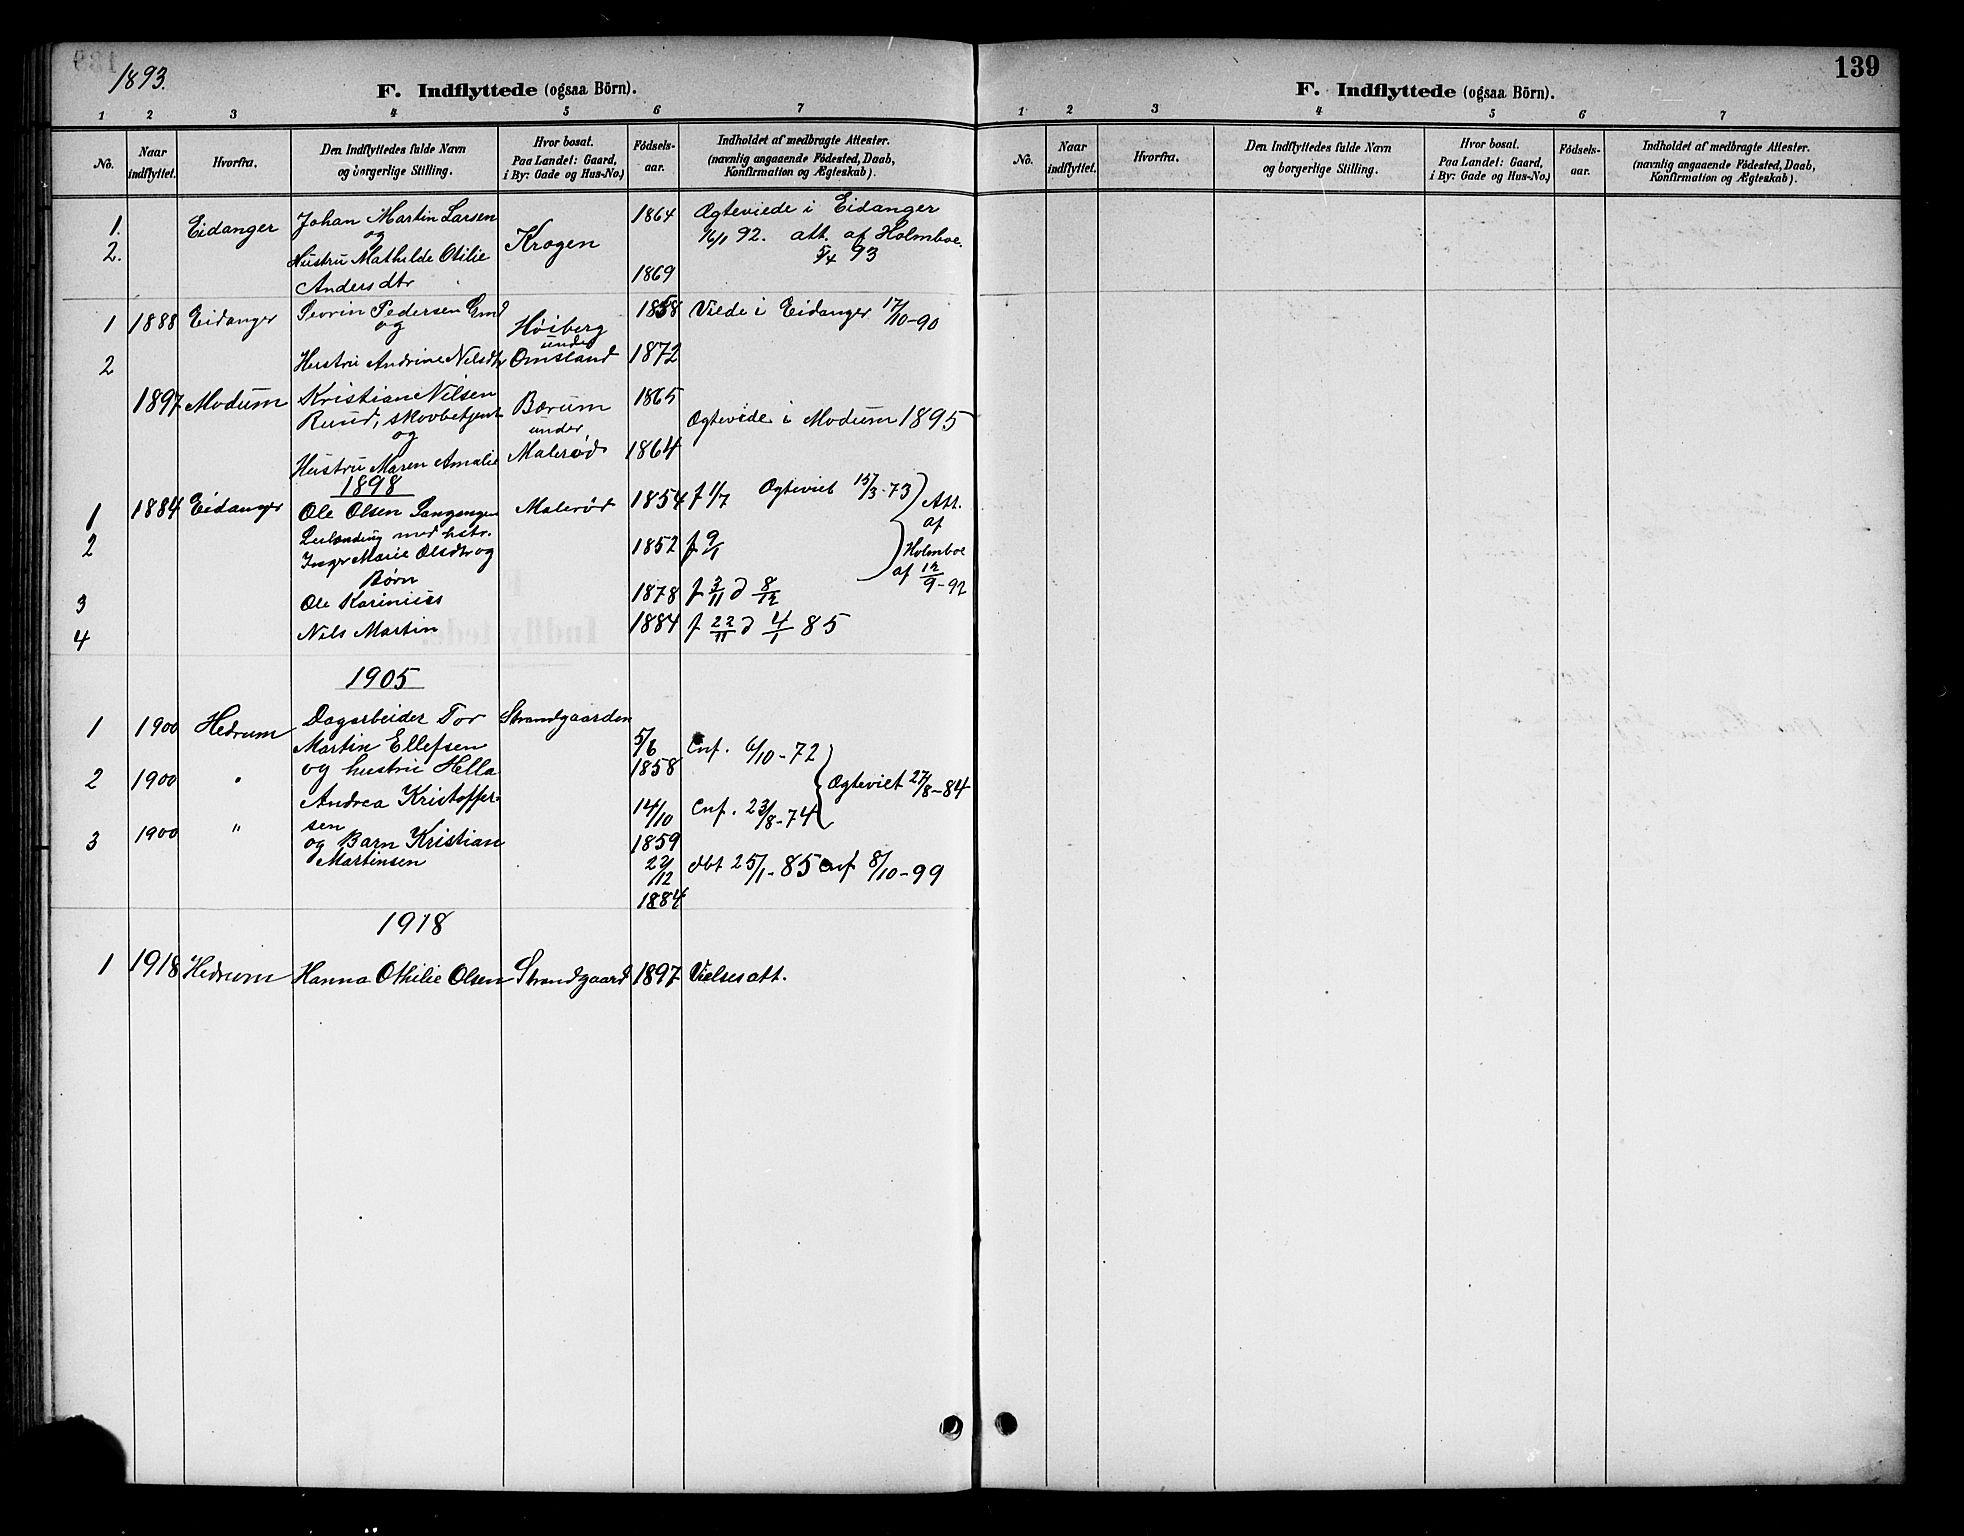 1893.
F. Indflyttede (ogsaa Börn).
1 2 3 4 5 6 7
No.
Naar indflyttet.
Hvorfra.
Den Indflyttedes fulde Navn
og borgerlige Stilling.
Hvor bosat.
Paa Landet: Gaard,
i By: Gade og Hus-No.)
Födsels-
aar.
Indholdet af medbragte Attester.
(navnlig angaaende Födested, Daab,
Konfirmation og Ægteskab).
1. Eidanger Johan Martin Larsen 1864 Ægteviede i Eidanger
og Krogen 16/1 92. att. af Holmboe
2. Hustru Mathilde Otilie 5/4 93
Andersdtr 1869
1 1888 Eidanger Severin Pedersen 1858 Viede i Eidanger 17/10-90
og Höiberg
under
2 Hustru Andrine Nilsdtr Omsland 1872
1897 Modum Kristian Nilsen Bærum 1865
Ruud, skovbetjent under Ægtevide i Modum 1895
og
Hustru Maren Amalie Malerød 1864
1898
1 1884 Eidanger Ole Olsen Langangen Malerød 1854 f 1/7 Ægteviet 15/3-73 Att.
Leilænding med hstr. af
2 Inger Marie Olsdtr og 1852 f 9/1 Holmboe
Børn af 12/9-92
3 Ole Karinius 1878 f 3/11 d 8/12
4 Nils Martin 1884 f 22/11 d 4/1 85
1905
1 1900 Hedrum Dagarbeider Tor Strandgaarden
Martin Ellefsen 5/6 Cnf. 6/10-72
2 1900 " og hustru Hella 1858 Ægteviet 27/8-84
Andrea Kristoffer- 14/10 Cnf. 23/8-74
sen
3 1900 " og Barn Kristian 1859
Martinsen 22/12 dbt 25/1-85 Cnf 8/10-99
1884
1918
1 1918 Hedrum Hanna Othilie Olsen Strandgaard 1897 Vielsesatt.
139
F. Indflyttede (ogsaa Börn).
1 2 3 4 5 6 7
No.
Naar indflyttet.
Hvorfra.
Den Indflyttedes fulde Navn
og borgerlige Stilling.
Hvor bosat.
Paa Landet: Gaard,
i By: Gade og Hus-No.)
Födsels-
aar.
Indholdet af medbragte Attester.
(navnlig angaaende Födested, Daab,
Konfirmation og Ægteskab).